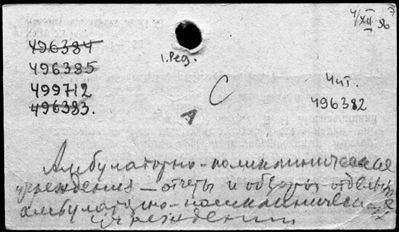 4/XII 96
496384
496385
499712
496383.
1.Ред.
С
А
Чит.
496382
Амбулаторно-поликлинические
учреждения - отчеты и обзоры отдельн.
амбулаторно-поликлинических
учреждений